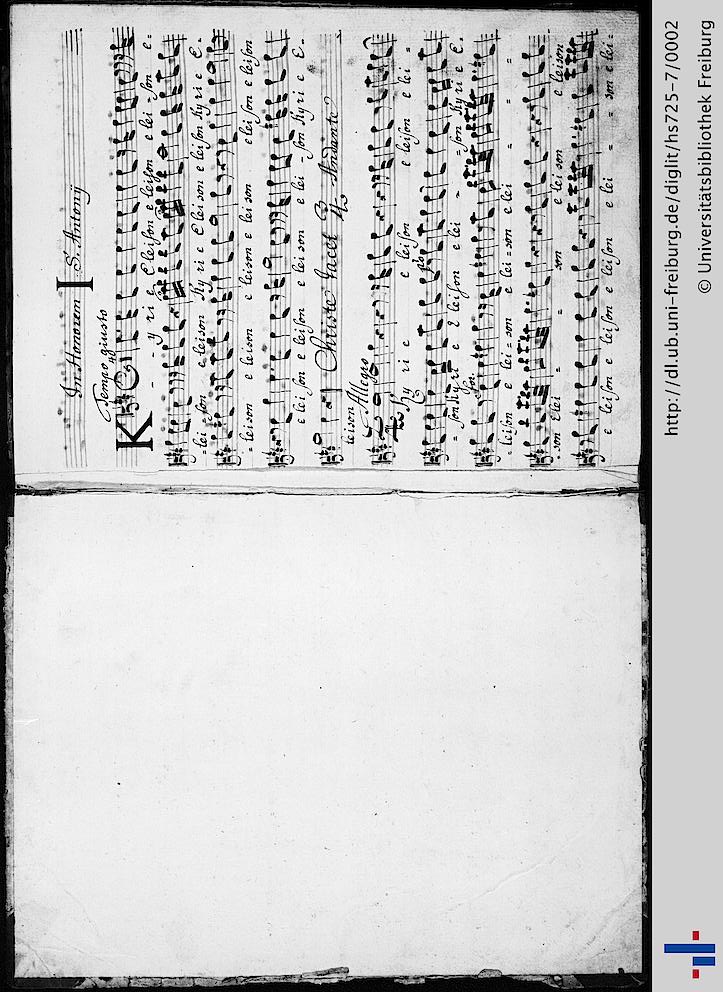 In Honorem I S. Antonÿ
Tempo giusto
K - - y ri e Eleison e leison e lei - son e -
- lei son e leison Ky ri e Elei son e leison Ky ri e E -
- leison e leison e leison e lei son e leison e leison
e lei son e leison e lei son e lei - son Ky ri e E -
leison Christe tacet 3/4 Andante
Allegro
Ky ri e e leison e leison e lei =
= son Ky ri e E leison e lei - - son Ky ri e E -
- leison e lei = son e lei = son e lei = = =
= son Elei = = son e lei son e leison
e leison e leison e leison e lei = = son e lei =
http://dl.ub.uni-freiburg.de/diglit/hs725-7/0002
© Universitätsbibliothek Freiburg